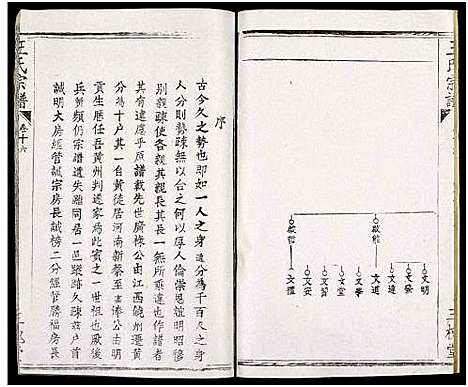 王氏宗譜
三槐堂
啟能
文道
文明
文祭
文學
文堂
啟
文習
文安
文禮
序
古今久之勢也即如一人之身遞分為千百人之身
人分則勢疎無以合之何以厚人倫崇恩誼明昭穆
別親疎使各親其親長其長一無所乖違也作譜者
其有遠慮乎原譜載先世廣條公由江西饒州遷黄
分為十户其一自黄徒居河南新蔡至 奉公由明
貢生歷任吾黄州判遂家為此賓之一世祖也厥後
兵燹頻仍宗譜遺失雖同居一邑蹤跡久疎茲户首
誠明大房經管誠宗房長誠榜二分經管勝福房長
王氏宗譜
卷十六
三槐堂